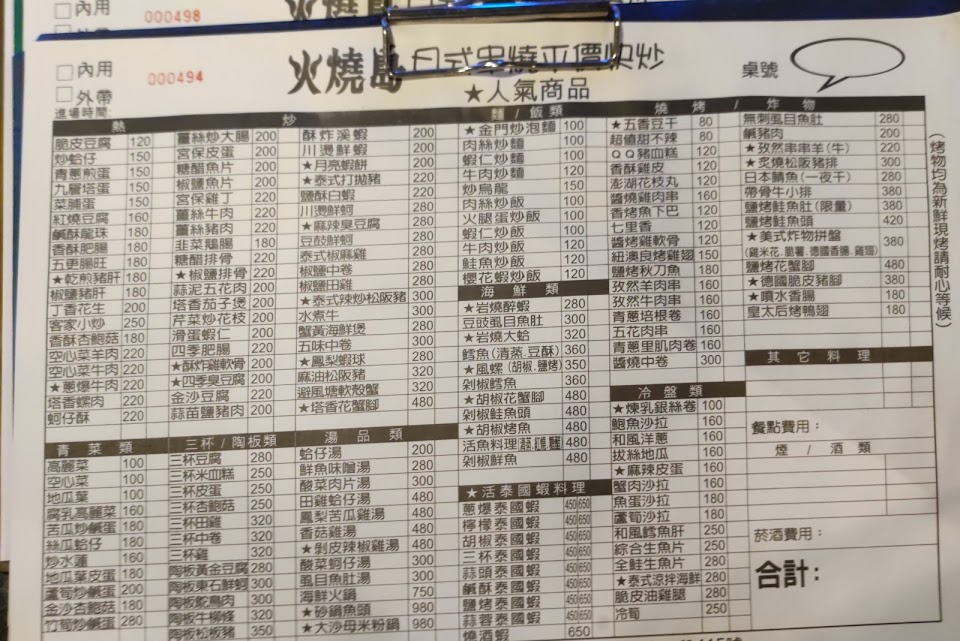 內用
000498
內用
外帶
000494
火燒島 日式串燒平價快炒
★人氣商品
桌號
進場時間:
熱 炒
脆皮豆腐 120
炒蛤仔 150
青蔥煎蛋 150
九層塔蛋 150
菜脯蛋 150
紅燒豆腐 160
鹹酥龍珠 180
香酥肥腸 180
五更腸旺 180
★乾煎豬肝 180
椒鹽豬肝 180
丁香花生 200
客家小炒 250
香酥杏鮑菇 180
空心菜羊肉 220
空心菜牛肉 220
★蔥爆牛肉 220
塔香螺肉 220
蚵仔酥 220
薑絲炒大腸 200
宮保皮蛋 200
糖醋魚片 200
椒鹽魚片 200
宮保雞丁 220
薑絲牛肉 220
薑絲豬肉 220
韭菜鵝腸 180
糖醋排骨 220
★椒鹽排骨 220
蒜泥五花肉 200
塔香茄子煲 200
芹菜炒花枝 200
滑蛋蝦仁 200
四季肥腸 220
★酥炸雞軟骨 200
★四季臭豆腐 220
金沙豆腐 220
蒜苗鹽豬肉 200
酥炸溪蝦 200
川燙鮮蝦 200
★月亮蝦餅 200
★泰式打拋豬 220
鹽酥白蝦 220
川燙鮮蚵 280
★麻辣臭豆腐 280
豆鼓鮮蚵 280
泰式椒麻雞 280
椒鹽中卷 280
椒鹽田雞 280
★泰式辣炒松阪豬 300
水煮牛 300
蟹黃海鮮煲 280
五味中卷 300
★鳳梨蝦球 280
麻油松阪豬 320
避風塘軟殼蟹 320
★塔香花蟹腳 480
麵 / 飯 類
★金門炒泡麵 100
肉絲炒麵 100
蝦仁炒麵 100
牛肉炒麵 120
炒烏龍 150
肉絲炒飯 100
火腿蛋炒飯 100
蝦仁炒飯 100
牛肉炒飯 120
鮭魚炒飯 120
櫻花蝦炒飯 120
海 鮮 類
★岩燒醉蝦 280
豆豉虱目魚肚 300
★岩燒大蛤 320
鱈魚(清蒸.豆酥) 360
★風螺(胡椒.鹽烤) 350
剁椒鱈魚 360
★胡椒花蟹腳 480
剁椒鮭魚頭 480
★胡椒烤魚 480
活魚料理 480
剁椒鮮魚 480
★活泰國蝦料理
蔥爆泰國蝦 450 650
檸檬泰國蝦 450 650
胡椒泰國蝦 450 650
三杯泰國蝦 450 650
蒜頭泰國蝦 450 650
鹹酥泰國蝦 450 650
鹽烤泰國蝦 450 650
蒜蓉泰國蝦 450 650
燒酒蝦 650
燒 烤 / 炸 物
★五香豆干 80
超值甜不辣 80
QQ豬血糕 120
香酥雞皮 120
澎湖花枝丸 120
醬燒雞肉串 160
香烤魚下巴 120
七里香 120
醬烤雞軟骨 120
紐澳良烤雞翅 150
鹽烤秋刀魚 180
孜然羊肉串 160
孜然牛肉串 160
青蔥培根卷 160
五花肉串 160
青蔥里肌肉卷 160
醬燒中卷 300
無刺虱目魚肚 280
鹹豬肉 200
★孜然串串羊(牛) 220
★炙燒松阪豬排 300
日本鯖魚(一夜干) 280
帶骨牛小排 380
鹽烤鮭魚肚(限量) 380
鹽烤鮭魚頭 420
★美式炸物拼盤 380
(雞米花.脆薯.德國香腸.雞翅)
鹽烤花蟹腳 480
★德國脆皮豬腳 380
★噴水香腸 180
皇太后烤鴨翅 180
(烤物均為新鮮現烤請耐心等候)
冷 盤 類
★煉乳銀絲卷 100
鮑魚沙拉 160
和風洋蔥 160
拔絲地瓜 160
★麻辣皮蛋 160
蟹肉沙拉 160
魚蛋沙拉 180
蘆筍沙拉 180
和風鱈魚肝 250
綜合生魚片 250
全鮭生魚片 280
★泰式涼拌海鮮 280
脆皮油雞腿 280
冷筍 250
其 它 料 理
餐點費用:
煙 / 酒 類
菸酒費用:
合計:
青 菜 類
高麗菜 100
空心菜 100
地瓜葉 100
腐乳高麗菜 160
苦瓜炒鹹蛋 180
絲瓜蛤仔 180
炒水蓮 160
地瓜葉皮蛋 180
蘆筍炒鹹蛋 200
金沙杏鮑菇 180
竹筍炒鹹蛋 200
三杯 / 陶板類
三杯豆腐 280
三杯米血糕 250
三杯皮蛋 250
三杯杏鮑菇 250
三杯田雞 320
三杯中卷 320
三杯雞 320
陶板黃金豆腐 280
陶板東石鮮蚵 300
陶板鴕鳥肉 300
陶板牛柳條 320
陶板松板豬 350
湯 品 類
蛤仔湯 200
鮮魚味噌湯 280
酸菜肉片湯 300
田雞蛤仔湯 480
鳳梨苦瓜雞湯 480
香菇雞湯 480
★剝皮辣椒雞湯 480
酸菜蚵仔湯 300
虱目魚肚湯 300
海鮮火鍋 750
★砂鍋魚頭 980
★大沙母米粉鍋 980